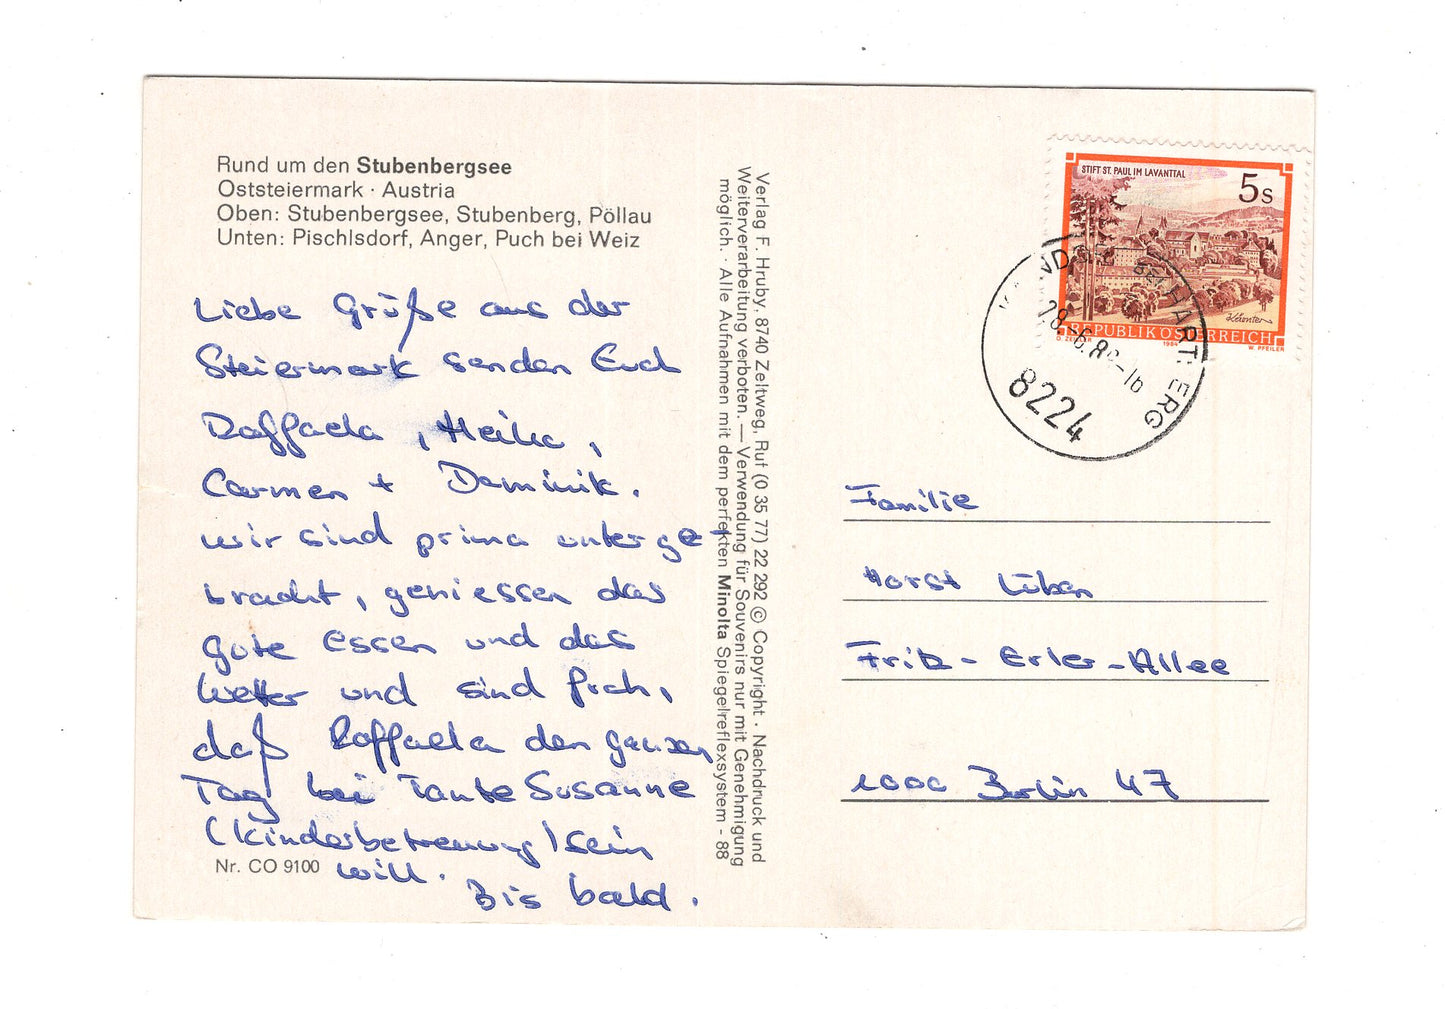 Rund um den Stubenbergsee
Oststeiermark · Austria
Oben: Stubenbergsee, Stubenberg, Pöllau
Unten: Pischlsdorf, Anger, Puch bei Weiz
Liebe Grüße aus der
Steiermark senden Euch
Raffaela, Heike,
Carmen + Dominik.
wir sind prima unterge-
bracht, geniessen das
gute Essen und das
Wetter und sind froh,
daß Raffaela den ganzen
Tag bei Tante Susanne
(Kinderbetreuung) sein
will.
Bis bald.
Nr. CO 9100
Verlag F. Hruby, 8740 Zeltweg, Ruf (0 35 77) 22 292 © Copyright · Nachdruck und
Weiterverarbeitung verboten. — Verwendung für Souvenirs nur mit Genehmigung
möglich. · Alle Aufnahmen mit dem perfekten Minolta Spiegelreflexsystem - 88
STIFT ST. PAUL IM LAVANTTAL
5S
REPUBLIK ÖSTERREICH
D. ZEILLER 1984 W. PFEILER
BEI HARTBERG
28.-6.8
8224
Familie
Horst Lüben
Fritz-Erler-Allee
1000 Berlin 47